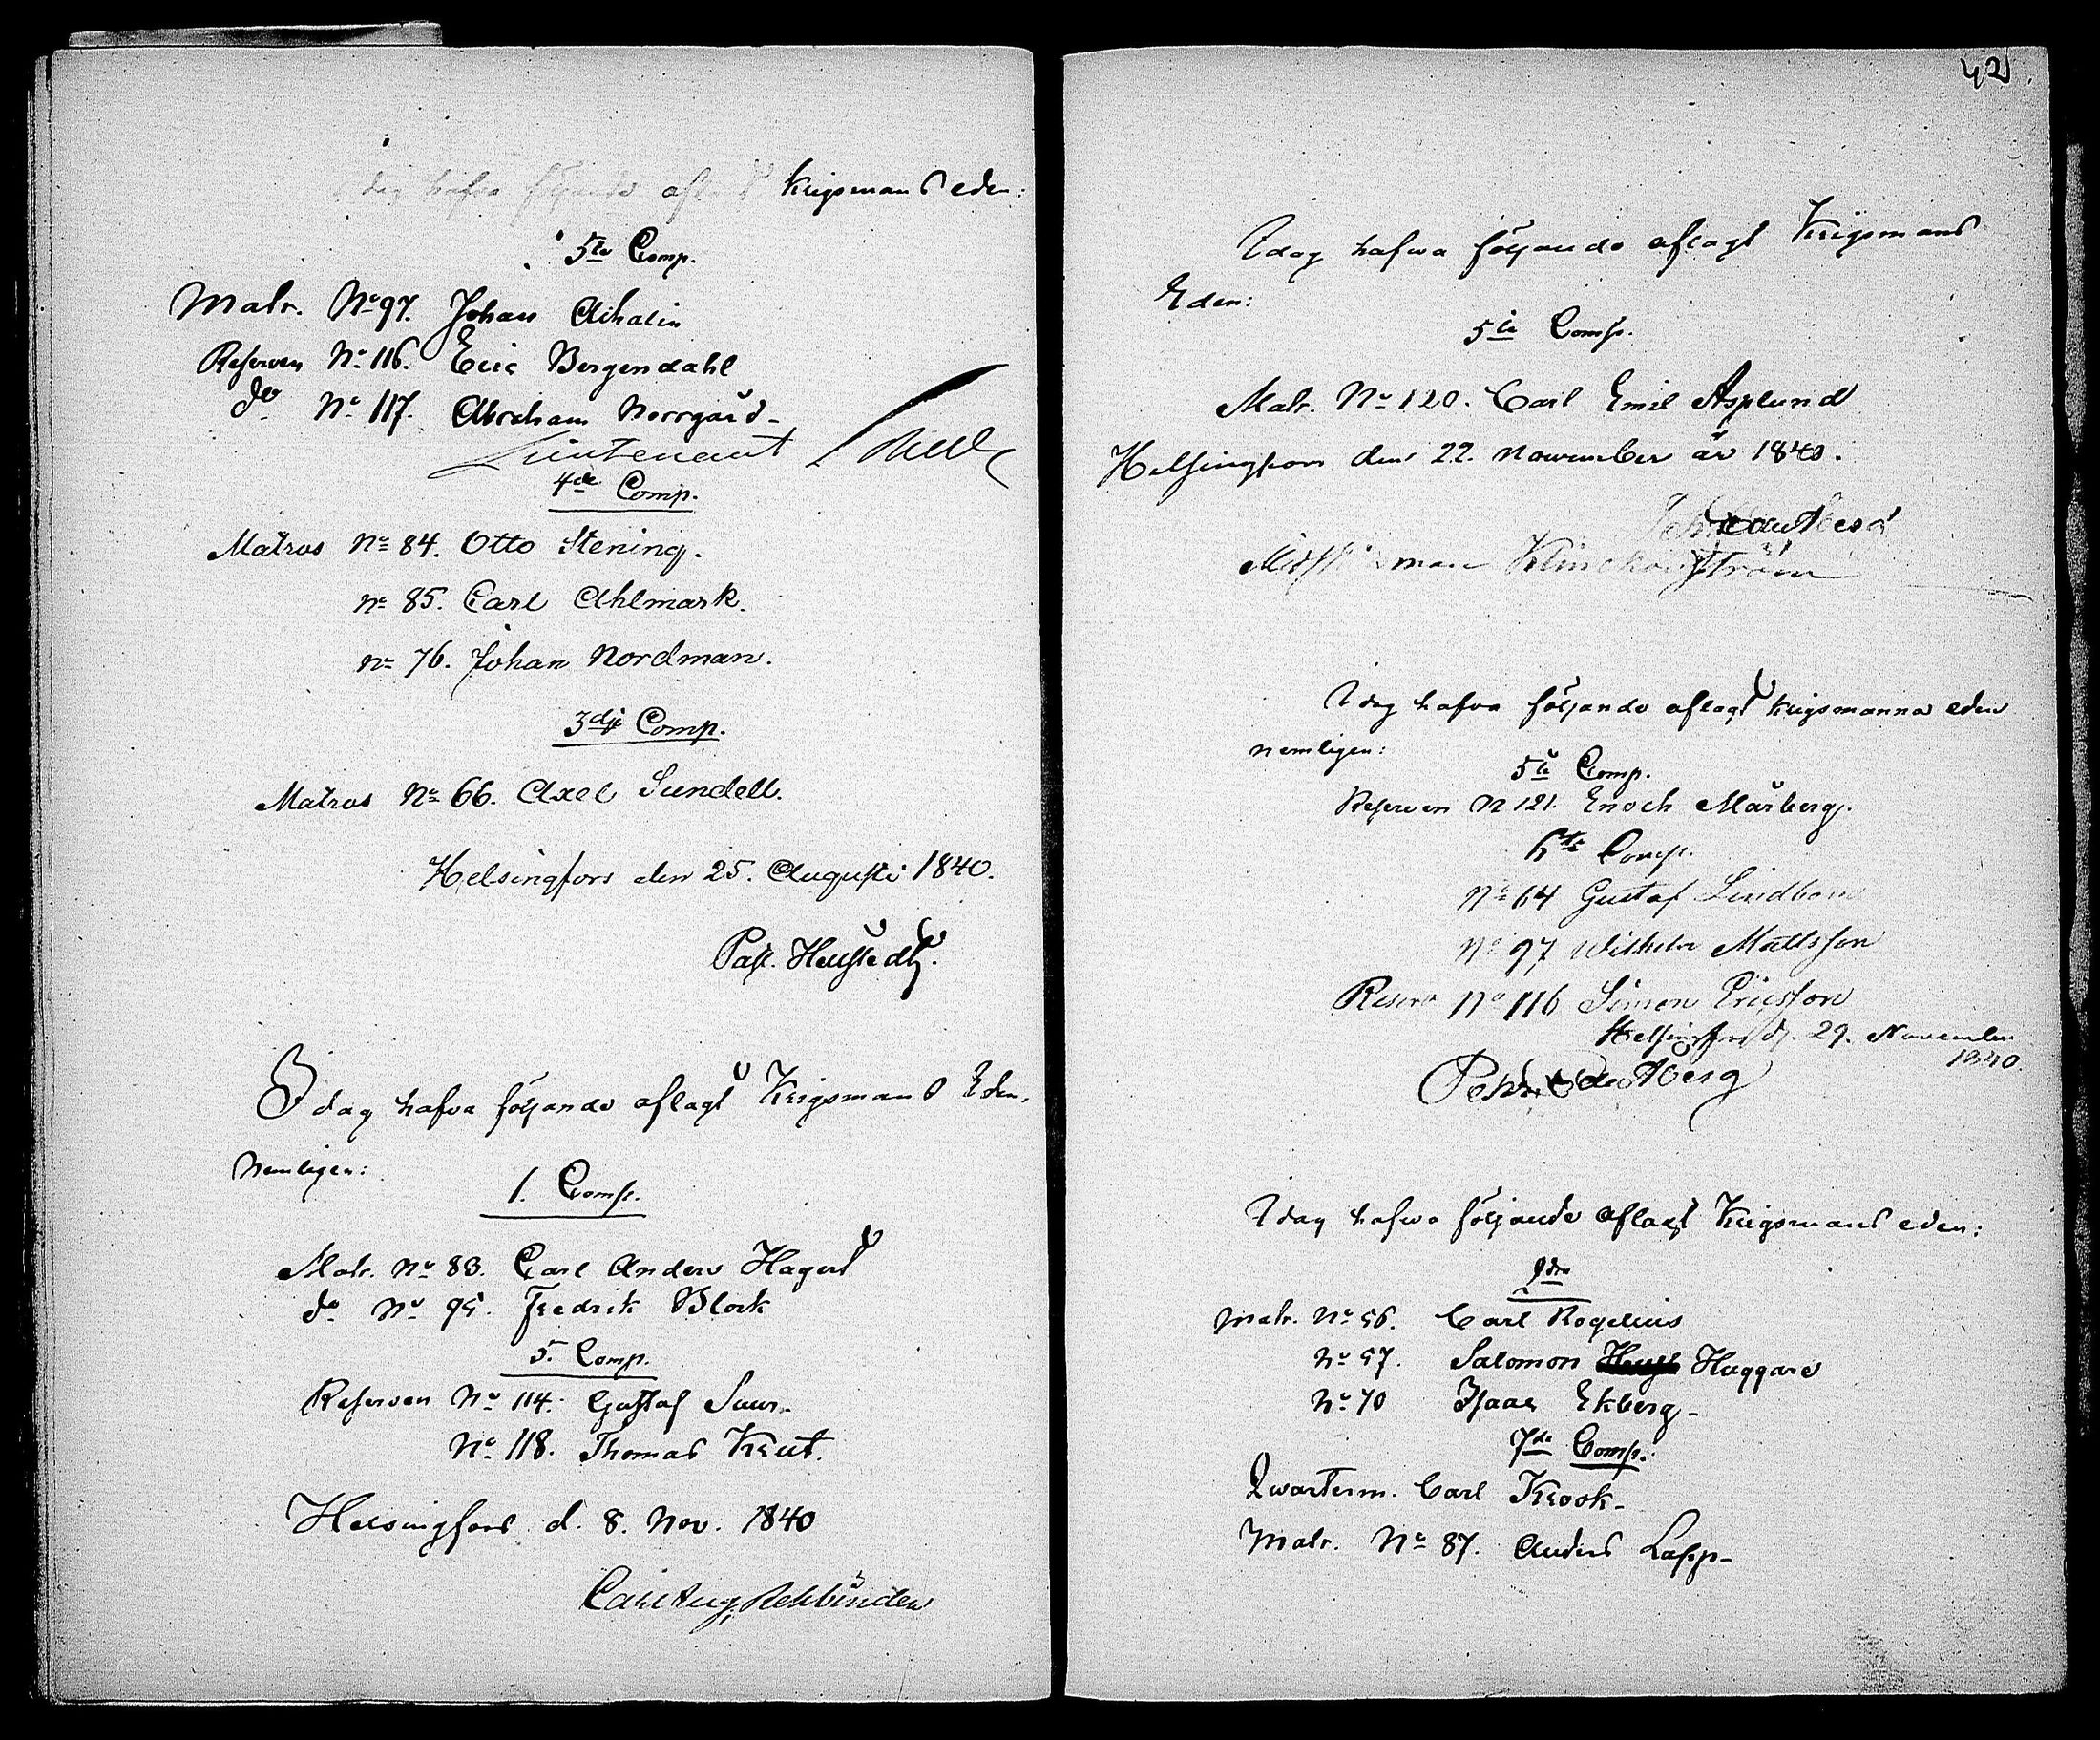 I dag hafva följande aflagt Krigsmans eden:
5te Comp.
Matr. No 97. Johan Ahalin
Reserven No 116. Eric Bergendahl
do No 117. Abraham Norrgård
Lieutenant
4de Comp.
Matros No 84. Otto Stening.
No 85. Carl Ahlmark.
No 76. Johan Nordman.
3dje Comp.
Matros No 66. Axel Sundell.
Helsingfors den 25. Augusti 1840.
Past.
I dag hafva följande aflagt Krigsmans Eden,
Nemligen:
1. Comp.
Matr. No 83. Carl Anders Hagert
do No 95. Fredrik Block
5. Comp.
Reserven No 114. Gustaf Suur
No 118. Thomas Knut.
Helsingfors d. 8. Nov. 1840
Carl Aug. Rehbinder
42
I dag hafwa följande aflagt Krigsmans
Eden:
5te Comp.
Matr. No 120. Carl Emil Asplund
Helsingfors den 22. November år 1840.
Midshipman Klinckowström
I dag hafva följande aflagt krigsmanna eden
nemligen:
5te Comp.
Reserven N 121. Enoch Mårberg.
6te Comp.
No 64 Gustaf Lindbom
No 97 Wilhelm Mattsson
Reserv No 116 Simon Ericsson
Helsingfors d. 29. November
1840.
I dag hafwa följande aflagt Krigsmans eden:
Matr. No 56. Carl Rogelius
No 57. Salomon Huggare
No 70 Isaac Ekberg
7de Comp.
Qwarterm. Carl Krook
Matr. No 87. Anders Lapp